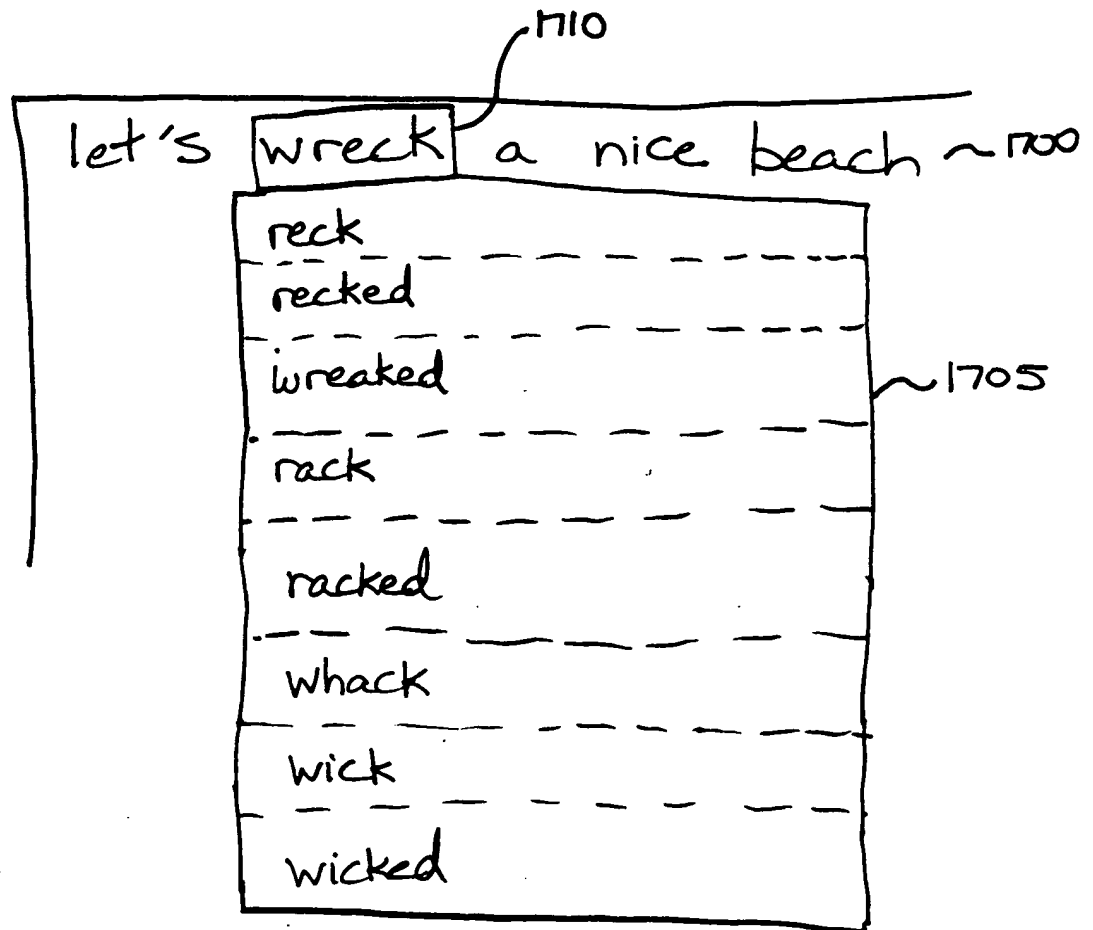 1710
let's wreck a nice beach ~ 1700
reck
recked
wreaked
~ 1705
rack
racked
whack
wick
wicked